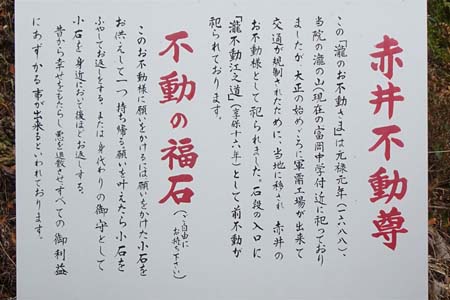 赤井不動尊
この「瀧のお不動さま」は元禄元年(一六八八)、
当院の瀧の山(現在の富岡中学付近に祀っており
ましたが、大正の始めごろに軍需工場が出来て
交通が規制されたために、当地に移され 赤井の
お不動様として祀られました。石段の入口に
「瀧不動江之道」(享保十六年)として前不動が
祀られております。
不動の福石(ご自由にお持ち下さい)
このお不動様に願いをかけるには願いをかけた小石を
お供えして一つ持ち帰る願いを叶えたら小石を
ふやしてお返しをする。または身代わりの御守として
小石を身近において後ほどお返しする。
昔から幸せをもたらし悪を退散させすべての御利益
にあずかる事が出来るといわれております。